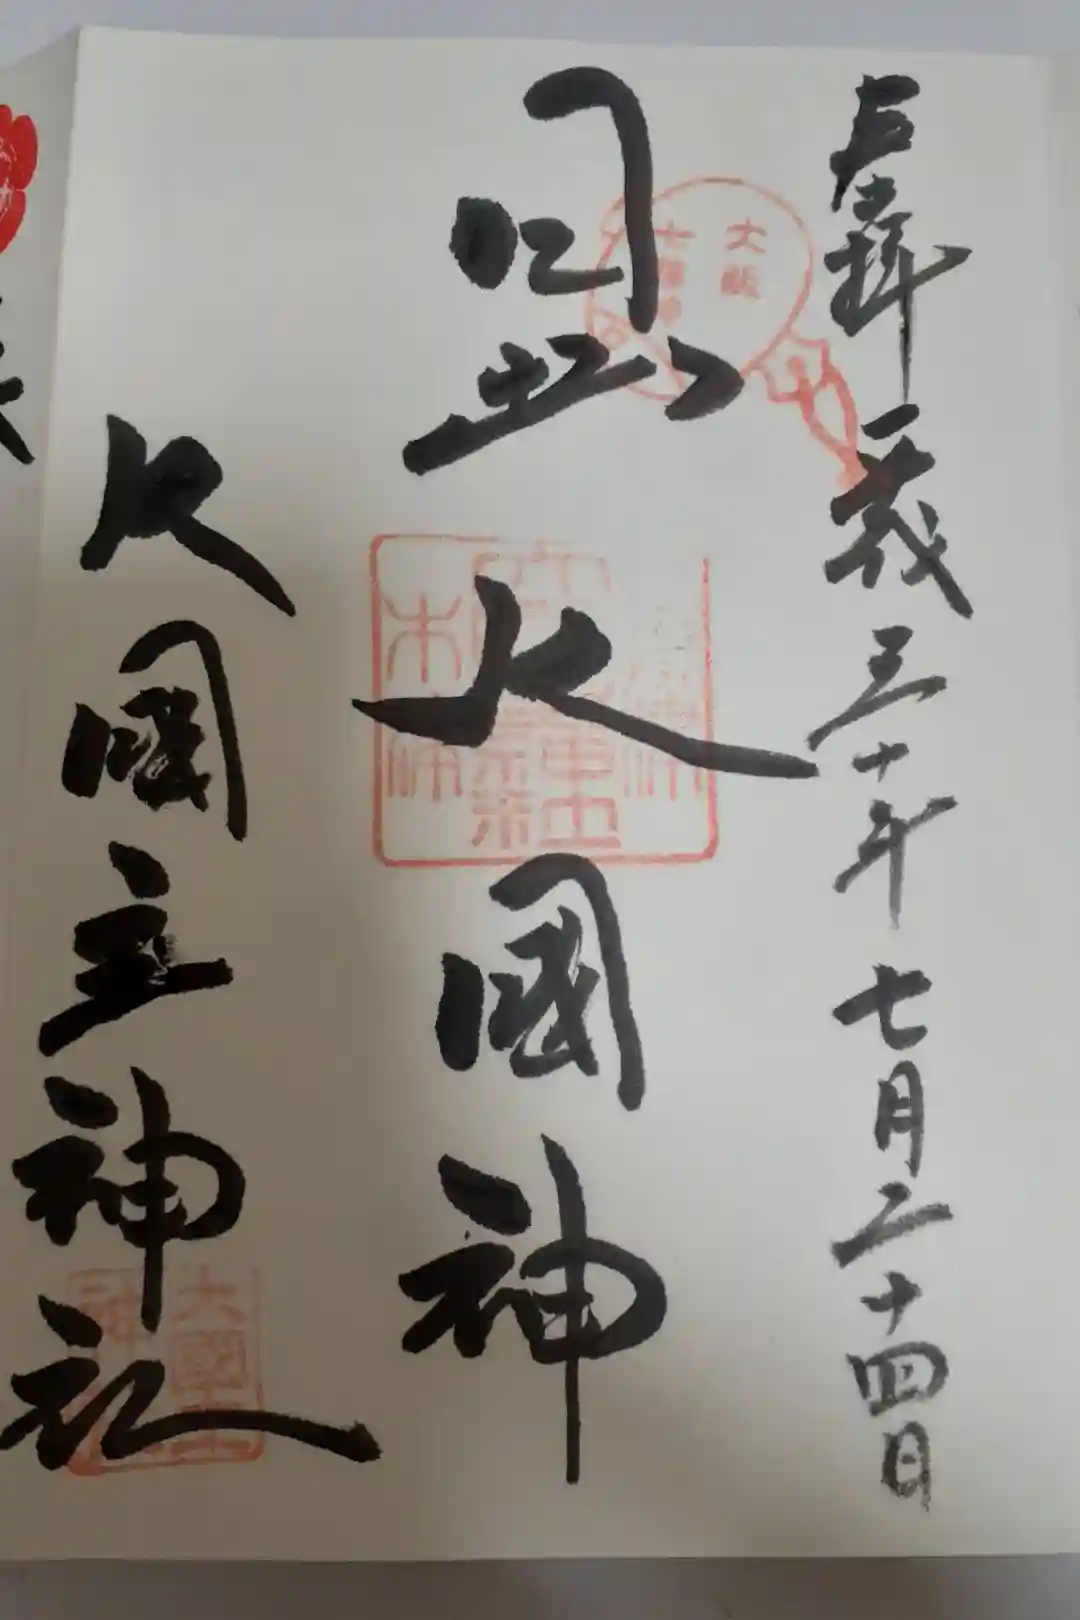 奉拝 平成三十年 七月二十四日
大阪
七福神
日出大國神
大國主神社
大國主